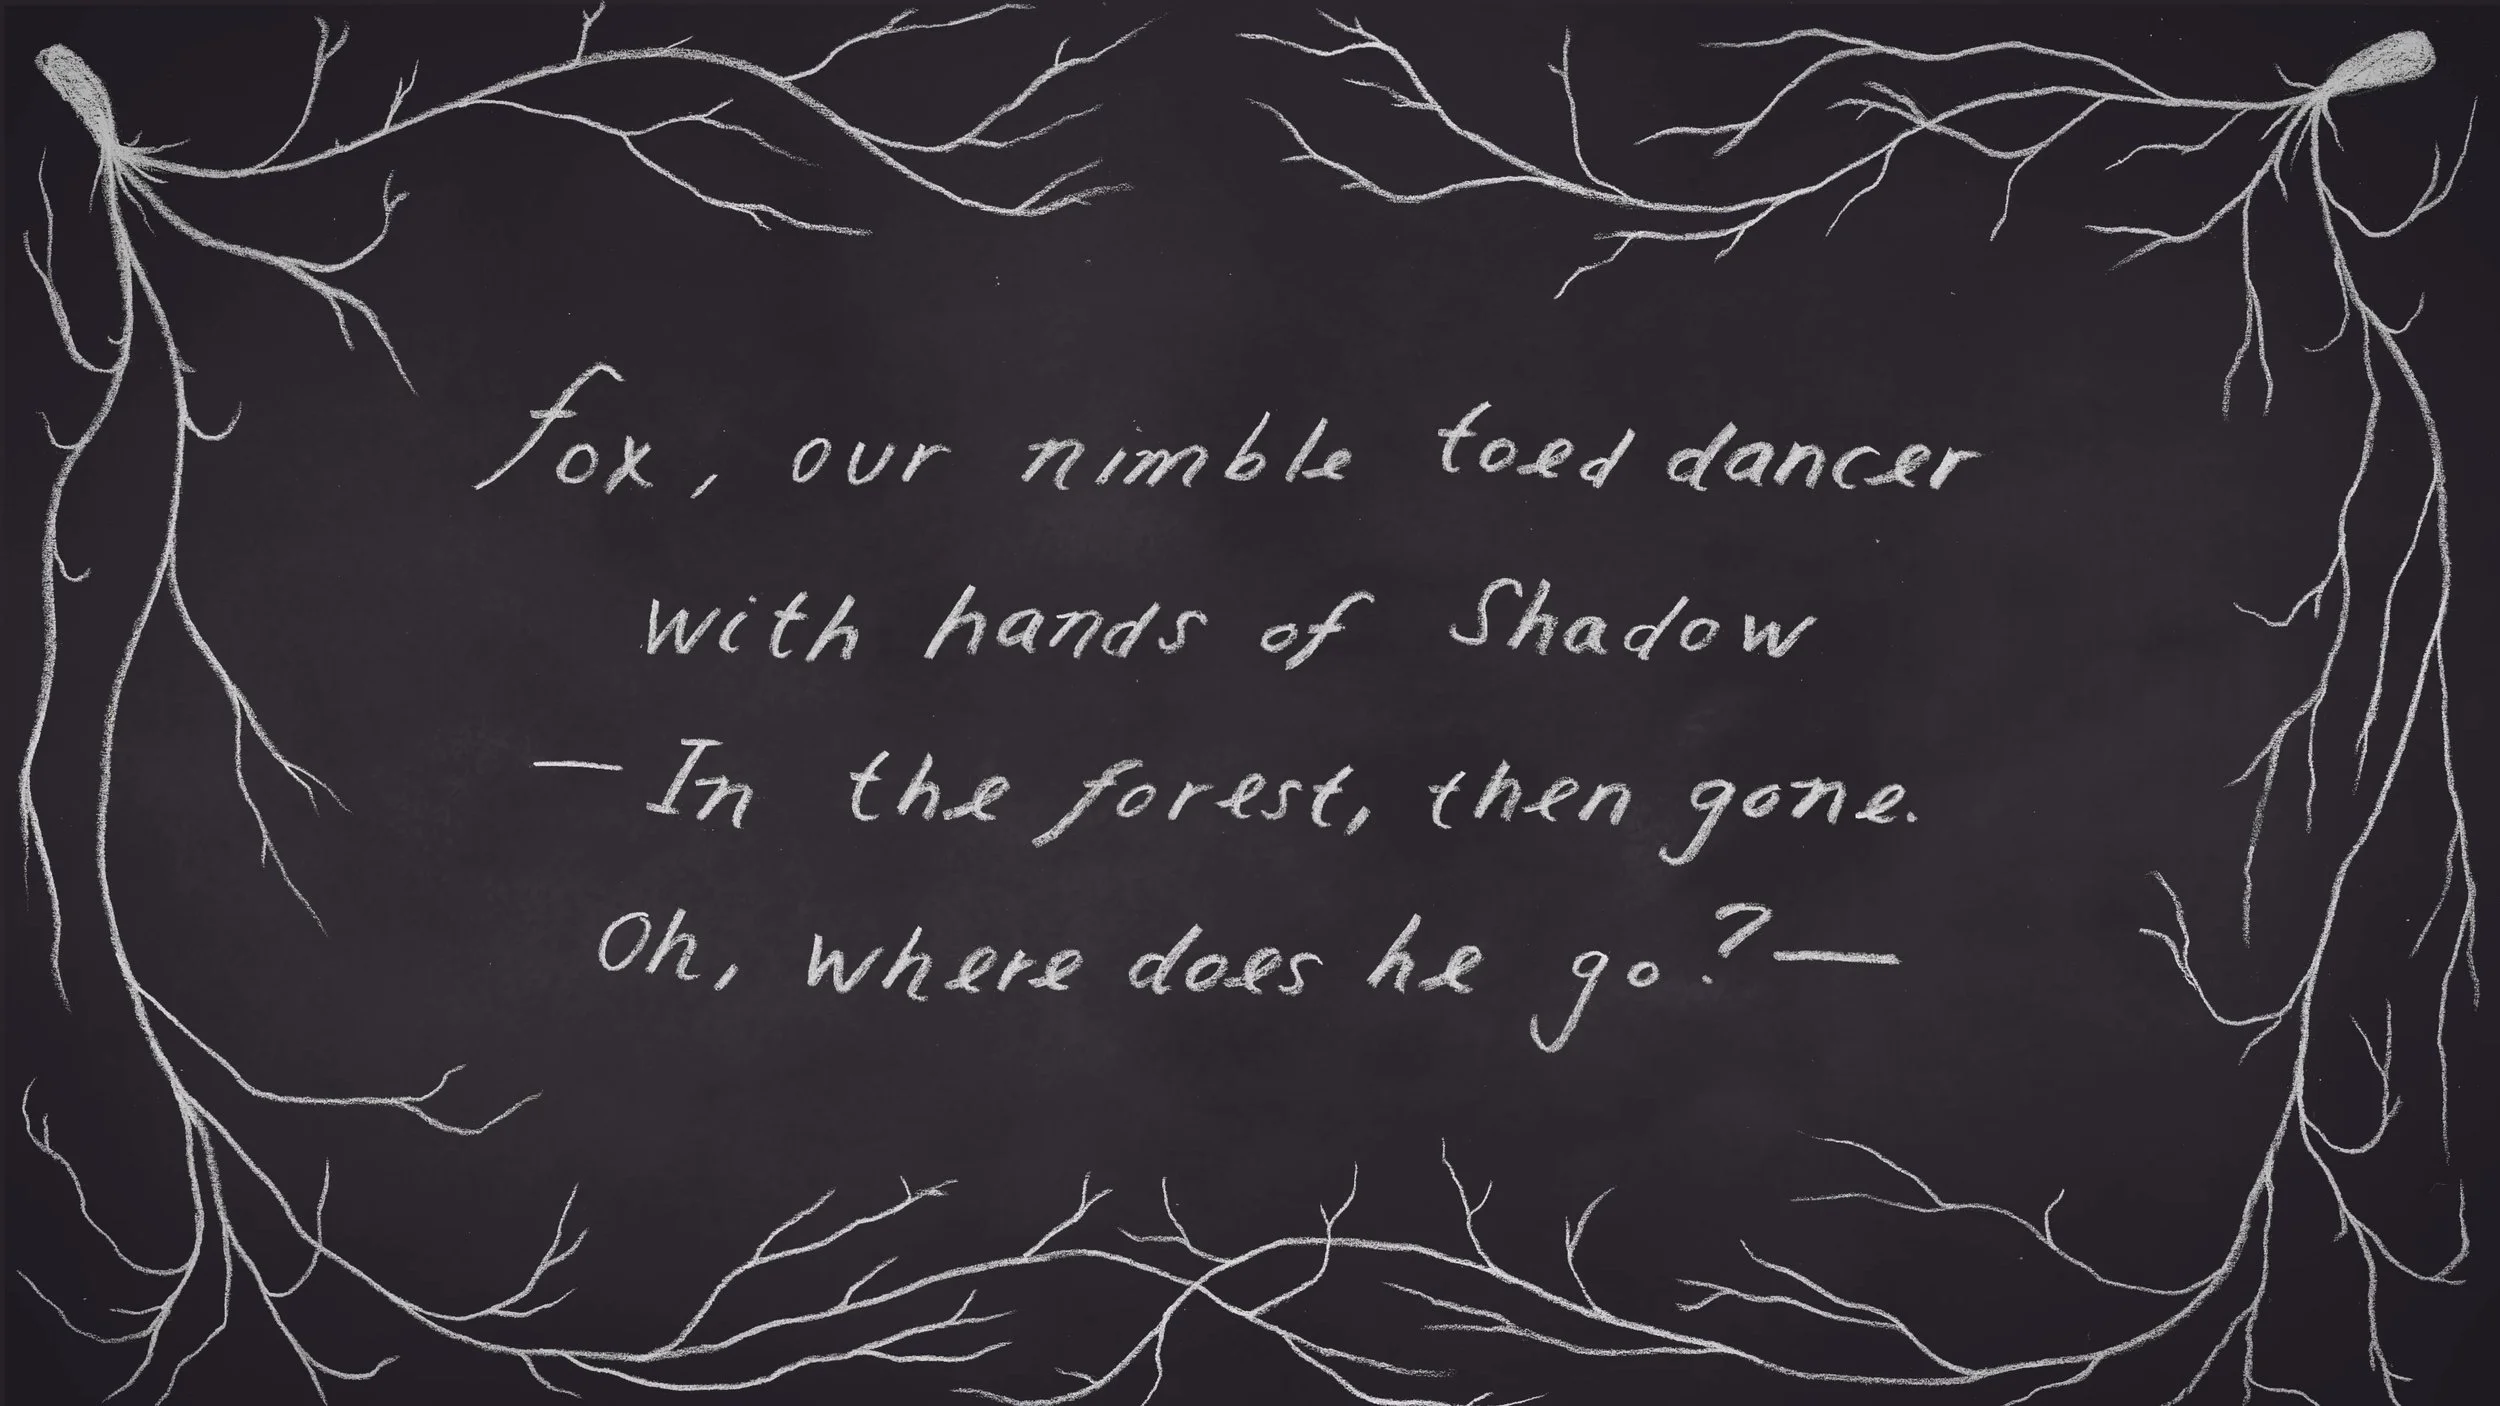 fox, our nimble toed dancer
with hands of Shadow
—In the forest, then gone.
Oh, where does he go?—